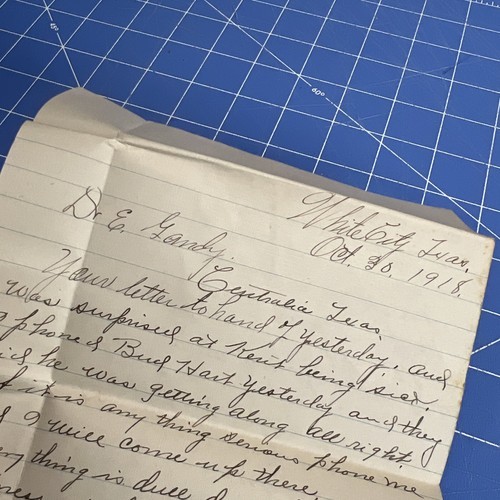 White City, Texas,
Oct. 30, 1918.
Dr E. Gandy.
Centralia Texas
Your letter to hand of yesterday, and
was surprised at Kent being sick.
phoned Bud Hart yesterday and they
he was getting along all right.
if it is any thing serious phone me
I will come up there.
thing is dull
60°